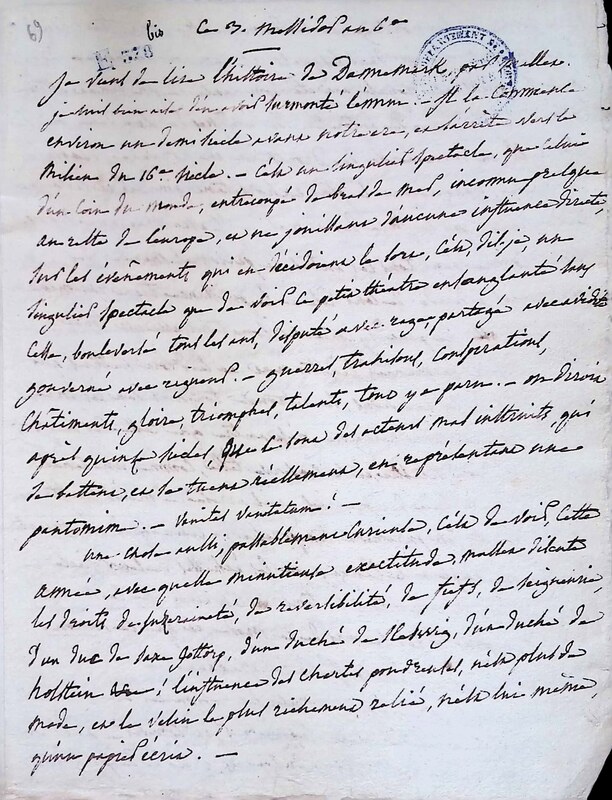 69
bis
Ce 3. messidor an 6e
E 328
DÉPARTEMENT
je viens de lire l'histoire de Dannemark, par Mallet.
je suis bien aise d'en avoir surmonté l'ennui. — Il la commence
environ un demi siecle avant notre ere, et s'arrete vers le
milieu du 16e siecle. — C'est un singulier spectacle, que celui
d'un coin du monde, entrecoupé de bras de mer, inconnu presque
au reste de l'europe, et ne jouissant d'aucune influence directe,
sur les évênements qui en décidoient le sort, c'est, dis-je, un
singulier spectacle que de voir ce petit théatre ensanglanté sans
cesse, bouleversé tous les ans, disputé avec rage, partagé avec avidité
gouverné avec rigueur. — guerres, trahisons, conspirations,
châtiments, gloire, triomphes, talents, tout y a paru. — on diroit
après quinze siecles, que ce sont des acteurs mal instruits, qui
se battent, et se tuent réellement, en représentant une
pantomim. — Vanitas vanitatum! —
une chose aussi, passablement curieuse, c'est de voir, cette
année, avec quelle minutieuse exactitude, mallet discute
les droits de suzeraineté, de reversibilité, de fiefs, de seigneurie,
d'un duc de saxe gottorp, d'un duché de Sleswig, d'un duché de
holstein ! l'influence des chartes poudreuses, n'est plus de
mode, et le velin le plus richement relié, n'est lui même,
qu'un papier écrit. —